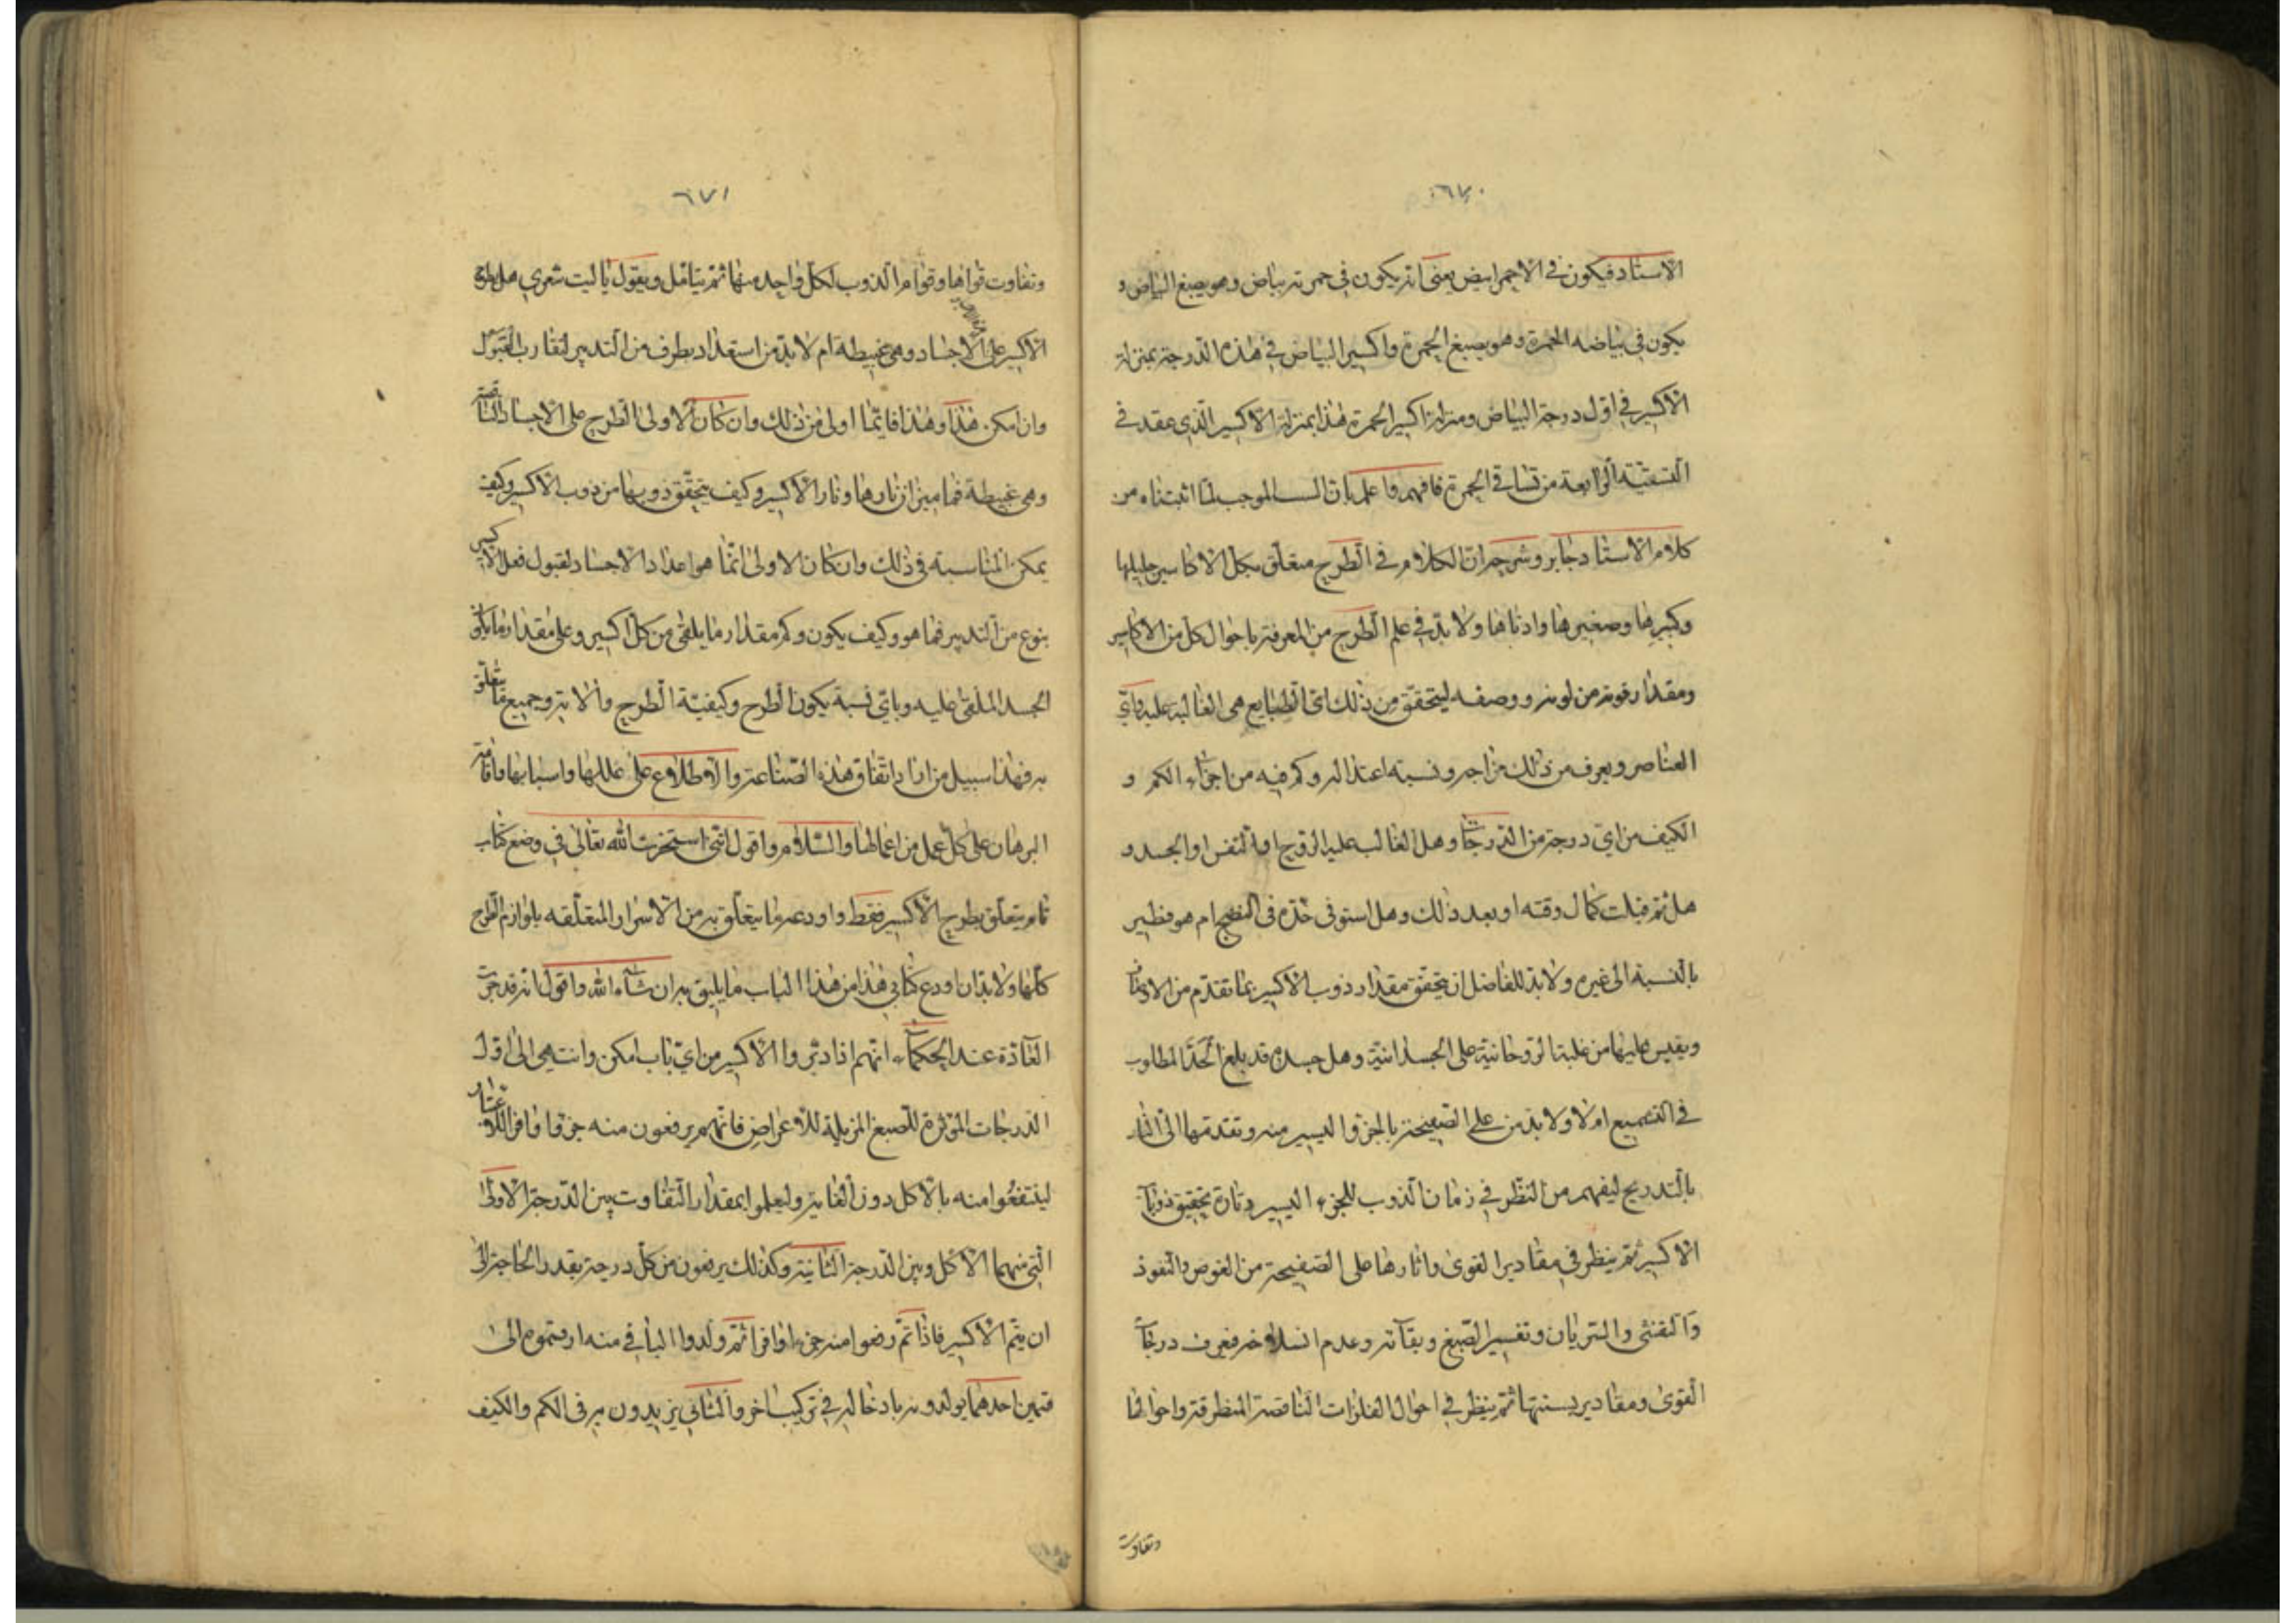 ٦٧٠
الاستاد فيكون في الاحمر ابيض يعنى انه يكون في حمرته بياض وهو يصبغ البياض و
يكون في بياضه الحمرة وهو يصبغ الحمرة واكسير البياض في هذه الدرجة بمنزلة
الاكسير في اول درجة البياض ومنزلة اكسير الحمرة هذا بمنزلة الاكسير الذي عقد في
التسقية الرابعة من تساقي الحمرة فافهم واعلم بان السـ الموجب لما اثبتناه من
كلام الاستاد جابر وشرحه ان الكلام في الطرح متعلق بكل الاكاسير جليلها
وكبيرها وصغيرها وادناها ولا بد في علم الطرح من المعرفة باحوال كل من الاكاسير
ومقدار قوته من لونه ووصفه ليتحقق من ذلك اى الطبايع هى الغالبة عليه واى
العناصر ويعرف من ذلك مزاجه ونسبة اعتداله وكم فيه من اجزاء الكم و
الكيف من اى درجة من الدرجات وهل الغالب عليه الروح او النفس او الجسد و
هل تم قبلت كمال وقته او بعد ذلك وهل استوفى حده فى النضج ام هو فطير
بالنسبة الى غيره ولا بد للفاضل ان يتحقق مقدار ذوب الاكسير بما تقدم من الاوزان
ويقيس عليها من غلبة الروحانية على الجسدانية وهل جسده قد بلغ الحد المطلوب
في التشميع ام لا ولا بد من علم الصفيحة بالجزو اليسير منه وتقدمها الى النار
بالتدريج ليفهم من النظر في زمان الذوب للجزء اليسير وتارة تحقيق ذوبان
الاكسير ثم ينظر في مقادير القوى واثارها على الصفيحة من الغوص والنفوذ
والتفشى والسريان وتفسير الصبغ وبقائه وعدم انسلاخه فيعرف درجات
القوى ومقادير نسبتها ثم ينظر في احوال الفلزات الناقصة المنطرقة واحوالها
وتفاوت
٦٧١
وتفاوت قواها وقوام الذوب لكل واحد منها ثم يتامل ويقول ياليت شعري هل يطرح
الاكسير على الاجساد وهى غبيطة ام لا بد من استعداد بطرف من التدبير لتقارب القبول
وان امكن هذا وهذا فايما اولى من ذلك وان كان الاولى الطرح على الاجساد الناقصة
وهى غبيطة فما ميزان نارها ونار الاكسير وكيف يتحقق ذوبها من ذوب الاكسير وكيف
يمكن المناسبة في ذلك وان كان الاولى انما هو اعداد الاجساد لقبول فعل الاكسير
بنوع من التدبير فما هو وكيف يكون وكم مقدار ما يلقى من كل اكسير وعلى مقدار ما يكون
الجسد الملقى عليه وباى نسبة يكون الطرح وكيفية الطرح والاته وجميع ما يتعلق
به فهذا سبيل من اراد اتقان هذه الصناعة والاطلاع على عللها واسبابها واقامة
البرهان على كل عمل من اعمالها والسلام واقول انى استخرت الله تعالى في وضع كتاب
تام يتعلق بطرح الاكسير فقط واودعه ما يتعلق به من الاسرار المتعلقه بلوازم الطرح
كلها ولا بد ان اودع كتابي هذا من هذا الباب ما يليق به ان شاء الله واقول انه قد جرت
العادة عند الحكماء انهم اذا دبروا الاكسير من اى باب امكن وانتهى الى اول
الدرجات المؤثرة للصبغ المزيلة للاعراض فانهم يرفعون منه جزوا وافرا للاعتبار
لينتفعوا منه بالاكل دون الغاية وليعلموا بمقدار التفاوت بين الدرجة الاولى
التي منها الاكل وبين الدرجة الثانية وكذلك يرفعون من كل درجة بقدر الحاجة الى
ان يتم الاكسير فاذا تم رفعوا منه جزءا وافرا ثم ولدوا الباقي منه او قسموه الى
قسمين احدهما يولدونه بادخاله في تركيب اخر والثاني يزيدون به فى الكم والكيف